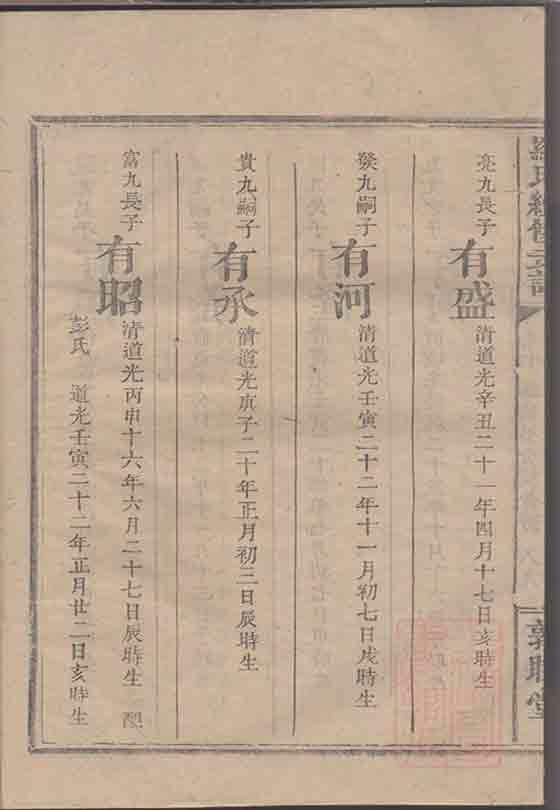 亮九長子
有盛
清道光辛丑二十一年四月十七日亥時生
癸九嗣子
有河
清道光壬寅二十二年十一月初七日戌時生
貴九嗣子
有承
清道光庚子二十年正月初三日辰時生
富九長子
有昭
清道光丙申十六年六月二十七日辰時生 配
彭氏 道光壬寅二十二年正月廿二日亥時生